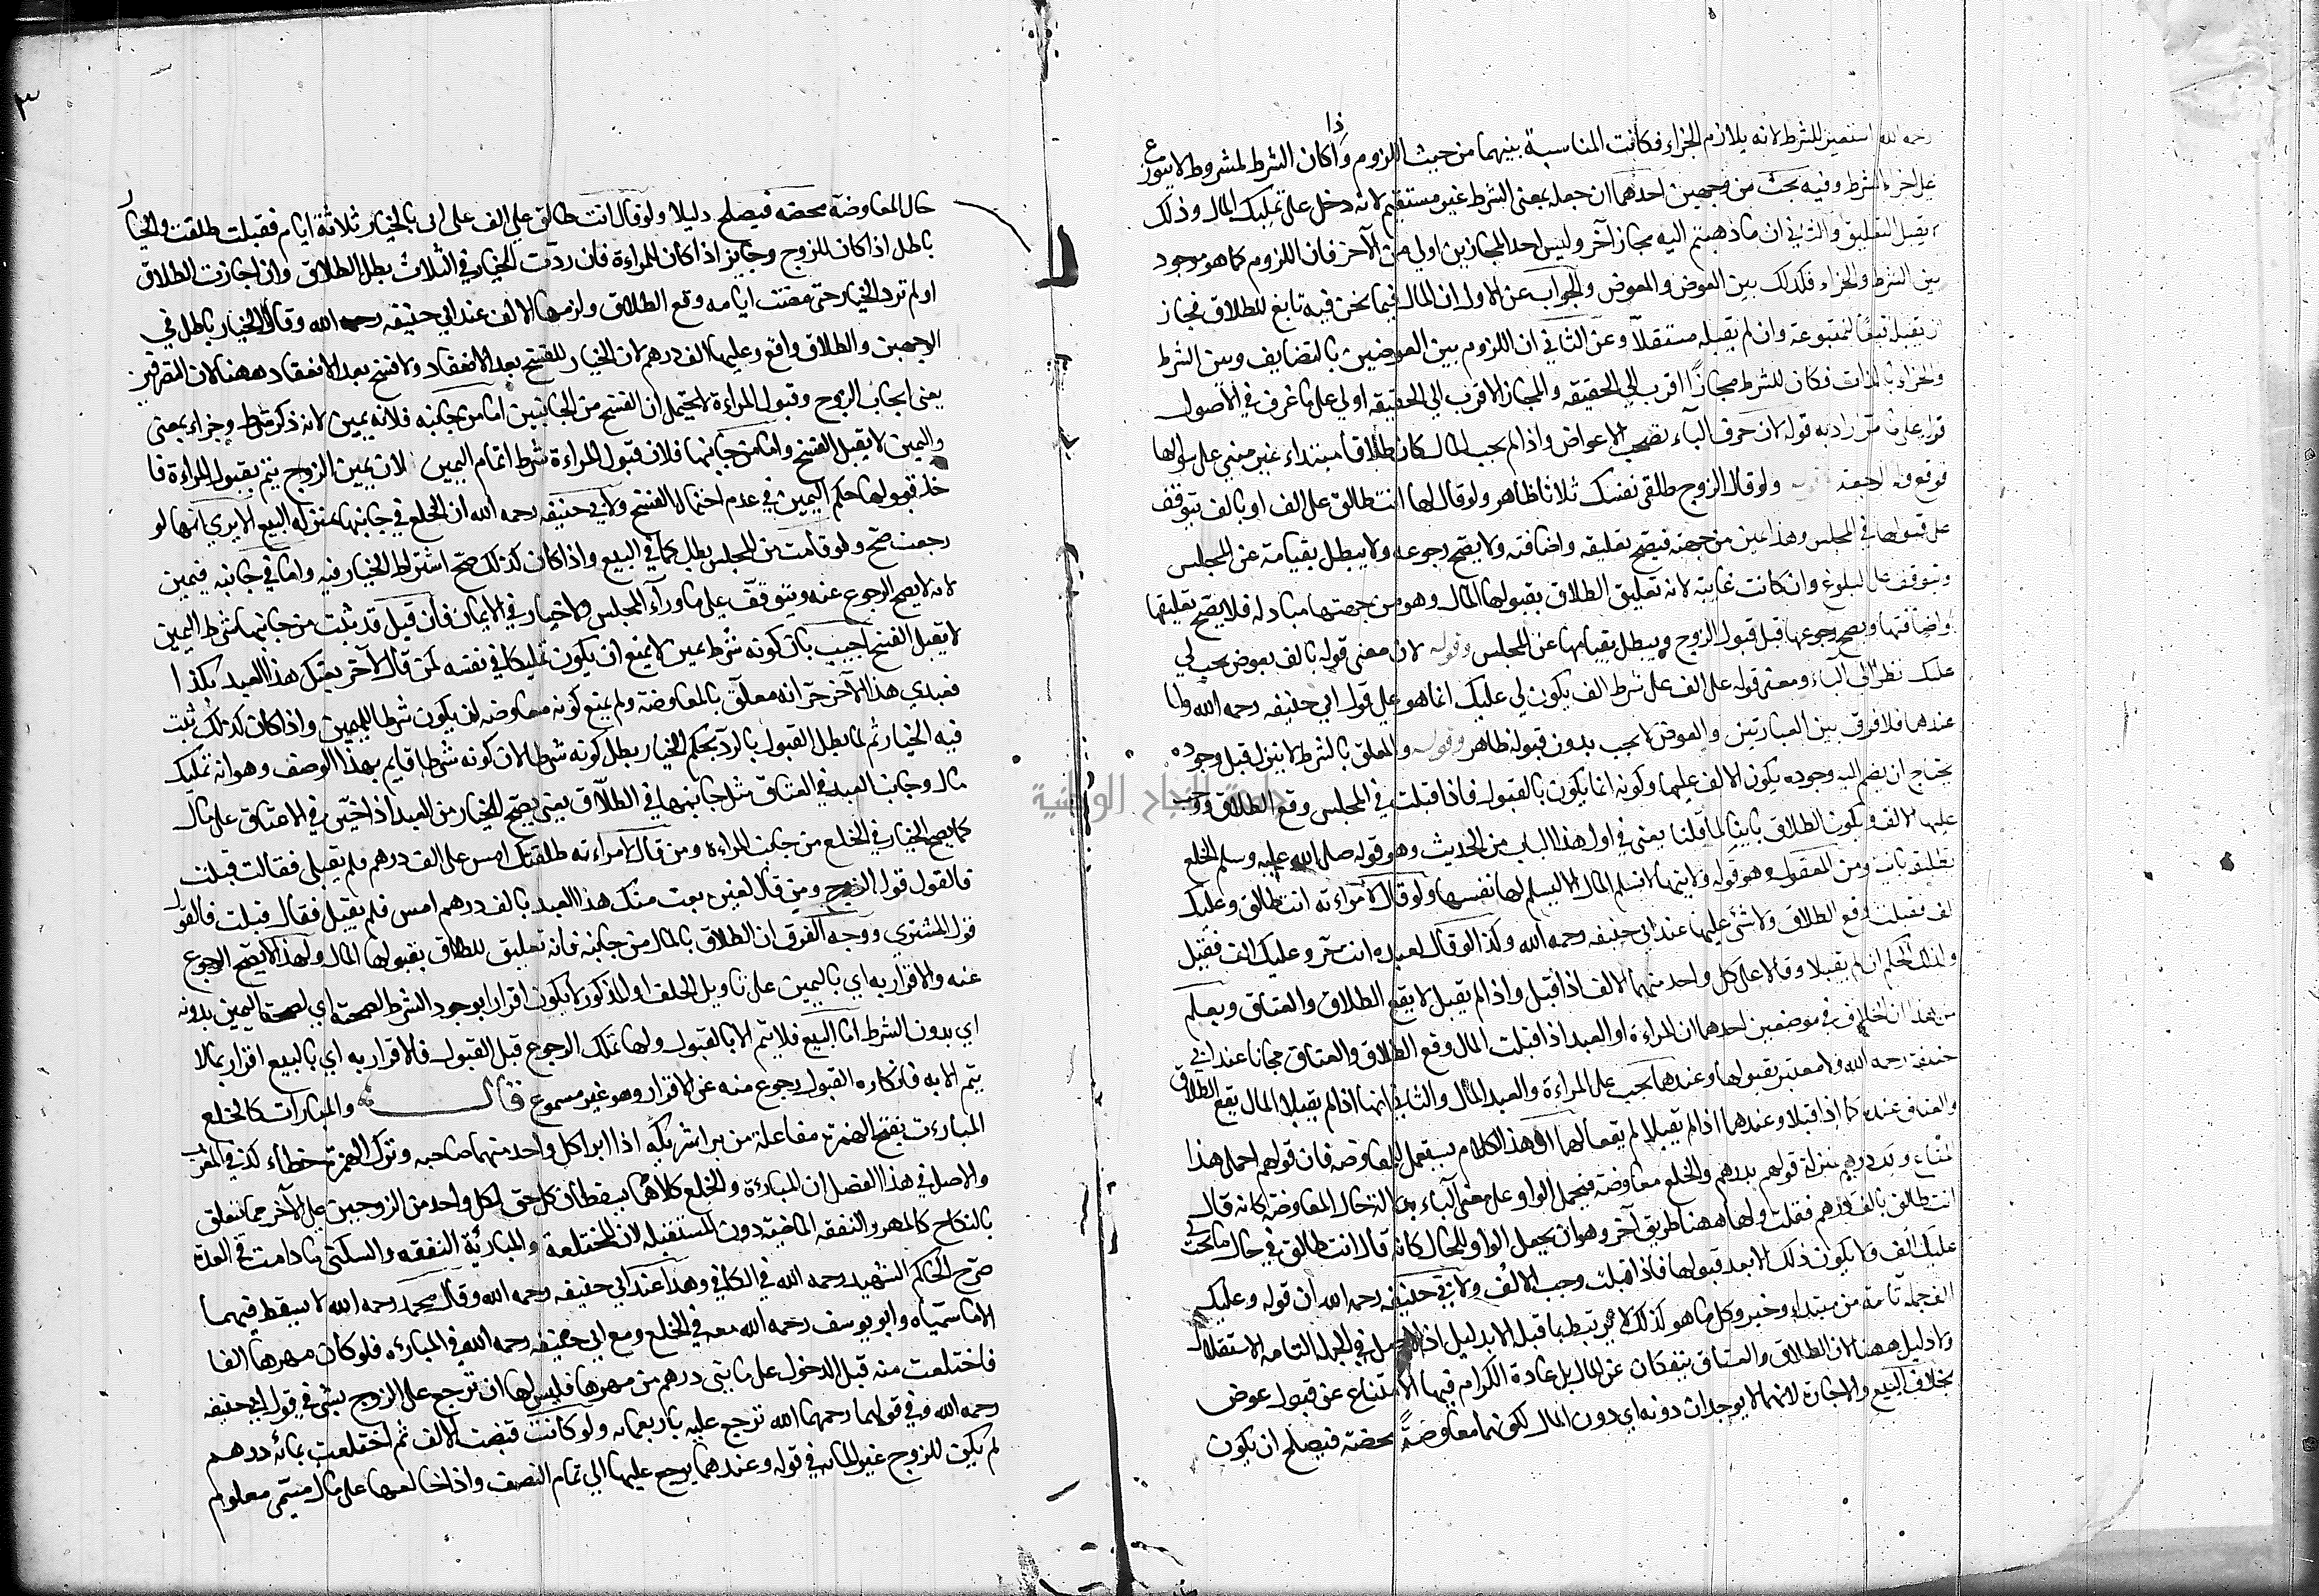 رحمه الله استعير للشرط لانه يلازم الجزاء فكانت المناسبة بينهما من حيث اللزوم واذا كان الشرط لمشروط لا يتوزع
على اجزاء الشرط وفيه بحث من وجهين احدهما ان جعله بمعنى الشرط غير مستقيم لانه دخل على تمليك المال وذلك
لا يقبل التعليق والثاني ان ما ذهبتم اليه مجاز آخر وليس احد المجازين اولى من الآخر فان اللزوم كما هو موجود
بين الشرط والجزاء فكذلك بين العوض والمعوض والجواب عن الاول ان المال فيما نحن فيه تابع للطلاق فجاز
ان يقبله تبعا لمتبوعه وان لم يقبله مستقلا وعن الثاني ان اللزوم بين العوضين بالتضايف وبين الشرط
والجزاء بالذات فكان للشرط مجازا اقرب الى الحقيقه والمجاز الاقرب الى الحقيقه اولى على ما عرف في الاصول
قوله على ما مر اراد به قوله لان حرف الباء تصحب الاعواض واذا لم يجب المال كان طلاقا مبتداء غير مبني على سوالها
فوقع وله الرجعة قوله ولو قال الزوج طلقي نفسك ثلاثا ظاهر ولو قال لها انت طالق على الف او بالف يتوقف
على قبولها في المجلس وهذا يمين من جهته فيصح تعليقه واضافته ولا يصح رجوعه ولا يبطل بقيامه عن المجلس
ويتوقف على البلوغ وان كانت غايبة لانه تعليق الطلاق بقبولها المال وهو من جهتها مبادله فلا يصح تعليقها
واضافتها ويصح رجوعها قبل قبول الزوج ويبطل بقيامها عن المجلس وقوله لان معنى قوله بالف بعوض يجب لي
عليك نظرا الى الباء ومعنى قوله على الف على شرط الف يكون لي عليك انما هو على قول ابي حنيفه رحمه الله واما
عندهما فلا فرق بين العبارتين والعوض لا يجب بدون قبوله ظاهر وقوله والمعلق بالشرط لا ينزل قبل وجوده
يحتاج ان يضم اليه وجوده يكون الالف عليها وكونه انما يكون بالقبول فاذا قبلت في المجلس وقع الطلاق ووجب
عليها الالف ويكون الطلاق باينا لما قلنا يعني في اول هذا الباب من الحديث وهو قوله صلى الله عليه وسلم الخلع
تطليقه باينه ومن المعقول وهو قوله ولانها لا تسلم المال الا ليسلم لها نفسها ولو قال لامراءته انت طالق وعليك
الف فقبلت وقع الطلاق ولا شئ عليها عند ابي حنيفه رحمه الله وكذا لو قال لعبده انت حر وعليك الف فقبل
وكذلك الحكم ان لم يقبلا وقالا على كل واحد منهما الالف اذا قبل واذا لم يقبل لا يقع الطلاق والعتاق ويعلم
من هذا ان الخلاف في موضعين احدهما ان المراءة او العبد اذا قبلت المال وقع الطلاق والعتاق مجانا عند ابي
حنيفة رحمه الله ولا معتبر بقبولها وعندهما يجب على المراءة والعبد المال والثاني انهما اذا لم يقبلا المال يقع الطلاق
والعتاق عنده كما اذا قبلا وعندهما اذا لم يقبلا لم يقعا لهما ان هذا الكلام يستعمل للمعاوضه فان قولهم احمل هذا
المتاع ولك درهم بمنزلة قولهم بدرهم والخلع معاوضه فيحمل الواو على معنى الباء بدلالة حال المعاوضه كانه قال
انت طالق بالف درهم فقبلت ولهما ههنا طريق آخر وهو ان يجعل الواو للحال كانه قال انت طالق في حال ما يجب لي
عليك الف ولا يكون ذلك الا بعد قبولها فاذا قبلت وجب الالف ولابي حنيفه رحمه الله ان قوله وعليك
الف جملة تامة من مبتداء وخبر وكل ما هو كذلك لا يرتبط بما قبله الا بدليل اذ الاصل في الجملة التامه الاستقلال
ولا دليل ههنا لان الطلاق والعتاق ينفكان عن المال بل عادة الكرام فيهما الامتناع عن قبول عوض
بخلاف البيع والاجارة لانهما لا يوجدان دونه اي دون المال لكونهما معاوضة محضة فيصلح ان يكون
حال المعاوضة محضه فيصلح دليلا ولو قال انت طالق على الف على اني بالخيار ثلاثة ايام فقبلت طلقت والخيار
باطل اذا كان للزوج وجايز اذا كان للمراءة فان ردت الخيار في الثلاث بطل الطلاق وان اجازت الطلاق
او لم ترد الخيار حتى مضت ايامه وقع الطلاق ولزمها الالف عند ابي حنيفه رحمه الله وقالا الخيار باطل في
الوجهين والطلاق واقع وعليها الف درهم لان الخيار للفسخ بعد الانعقاد ولا فسخ بعد الانعقاد ههنا لان التصرفين
يعني ايجاب الزوج وقبول المراءة لا يحتمل ان الفسخ من الجانبين اما من جانبه فلانه يمين لانه ذكر شرط وجزاء بمعنى
واليمين لا يقبل الفسخ واما من جانبها فلان قبول المراءة شرط اتمام اليمين لان يمين الزوج يتم بقبول المراءة فا
خذ قبولها حكم اليمين في عدم احتمال الفسخ ولابي حنيفه رحمه الله ان الخلع في جانبها بمنزلة البيع الا يرى انها لو
رجعت صح ولو قامت من المجلس بطل كما في البيع واذا كان كذلك صح اشتراط الخيار فيه واما في جانبه فيمين
لانه لا يصح الرجوع عنه ويتوقف على ما وراء المجلس ولا خيار في الايمان فان قيل قد ثبت من جانبها شرط اليمين
لا يقبل الفسخ اجيب بان كونه شرط يمين لا يمنع ان يكون تمليكا في نفسه كمن قال لآخر بعتك هذا العبد بكذا
فعبدي هذا الآخر حر انه معلق بالمعاوضة ولم يمنع كونه معاوضه ان يكون شرطا لليمين واذا كان كذلك ثبت
فيه الخيار ثم لما بطل القبول بالرد بحكم الخيار بطل كونه شرطا لان كونه شرطا قايم بهذا الوصف وهو انه تمليك
مال وجانب العبد في العتاق مثل جانبها في الطلاق يعني يصح الخيار من العبد اذا خير في الاعتاق على مال
كما يصح الخيار في الخلع من جانب المراءة ومن قال لامراءته طلقتك امس على الف درهم فلم يقبلي فقالت قبلت
فالقول قول الزوج ومن قال لغيره بعت منك هذا العبد بالف درهم امس فلم يقبل فقال قبلت فالقول
قول المشتري ووجه الفرق ان الطلاق بالمال من جانبه فانه تعليق للطلاق بقبولها المال ولهذا لا يصح الرجوع
عنه والاقرار به اي باليمين على تاويل الحلف او المذكور لا يكون اقرارا بوجود الشرط لصحته اي لصحة اليمين بدونه
اي بدون الشرط اما البيع فلا يتم الا بالقبول ولها تملك الرجوع قبل القبول فالاقرار به اي بالبيع اقرار بما لا
يتم الا به فانكاره القبول رجوع منه عن الاقرار وهو غير مسموع قال والمبارات كالخلع
المباراءت بفتح الهمزة مفاعلة من برا شريكه اذا ابرا كل واحد منهما صاحبه وترك الهمزة خطاء كذي في المغرب
والاصل في هذا الفصل ان المباراءة والخلع كلاهما يسقطان كل حق لكل واحد من الزوجين على الآخر مما يتعلق
بالنكاح كالمهر والنفقه الماضية دون المستقبله لان للمختلعة والمبارئة النفقه والسكنى ما دامت في العدة
صرح الحاكم الشهيد رحمه الله في الكافي وهذا عند ابي حنيفه رحمه الله وقال محمد رحمه الله لا يسقط فيهما
الا ما سمياه وابو يوسف رحمه الله معه في الخلع ومع ابي حنيفه رحمه الله في المباراءه فلو كان مهرها الفا
فاختلعت منه قبل الدخول على مايتي درهم من مهرها فليس لها ان ترجع على الزوج بشئ في قول ابي حنيفه
رحمه الله وفي قولهما رحمهما الله ترجع عليه باربعمائه ولو كانت قبضت الالف ثم اختلعت بمائة درهم
لم يكن للزوج غير المائه في قوله وعندهما يرجع عليها الى تمام النصف واذا خالعها على مال مسمى معلوم
جامعة النجاح الوطنية